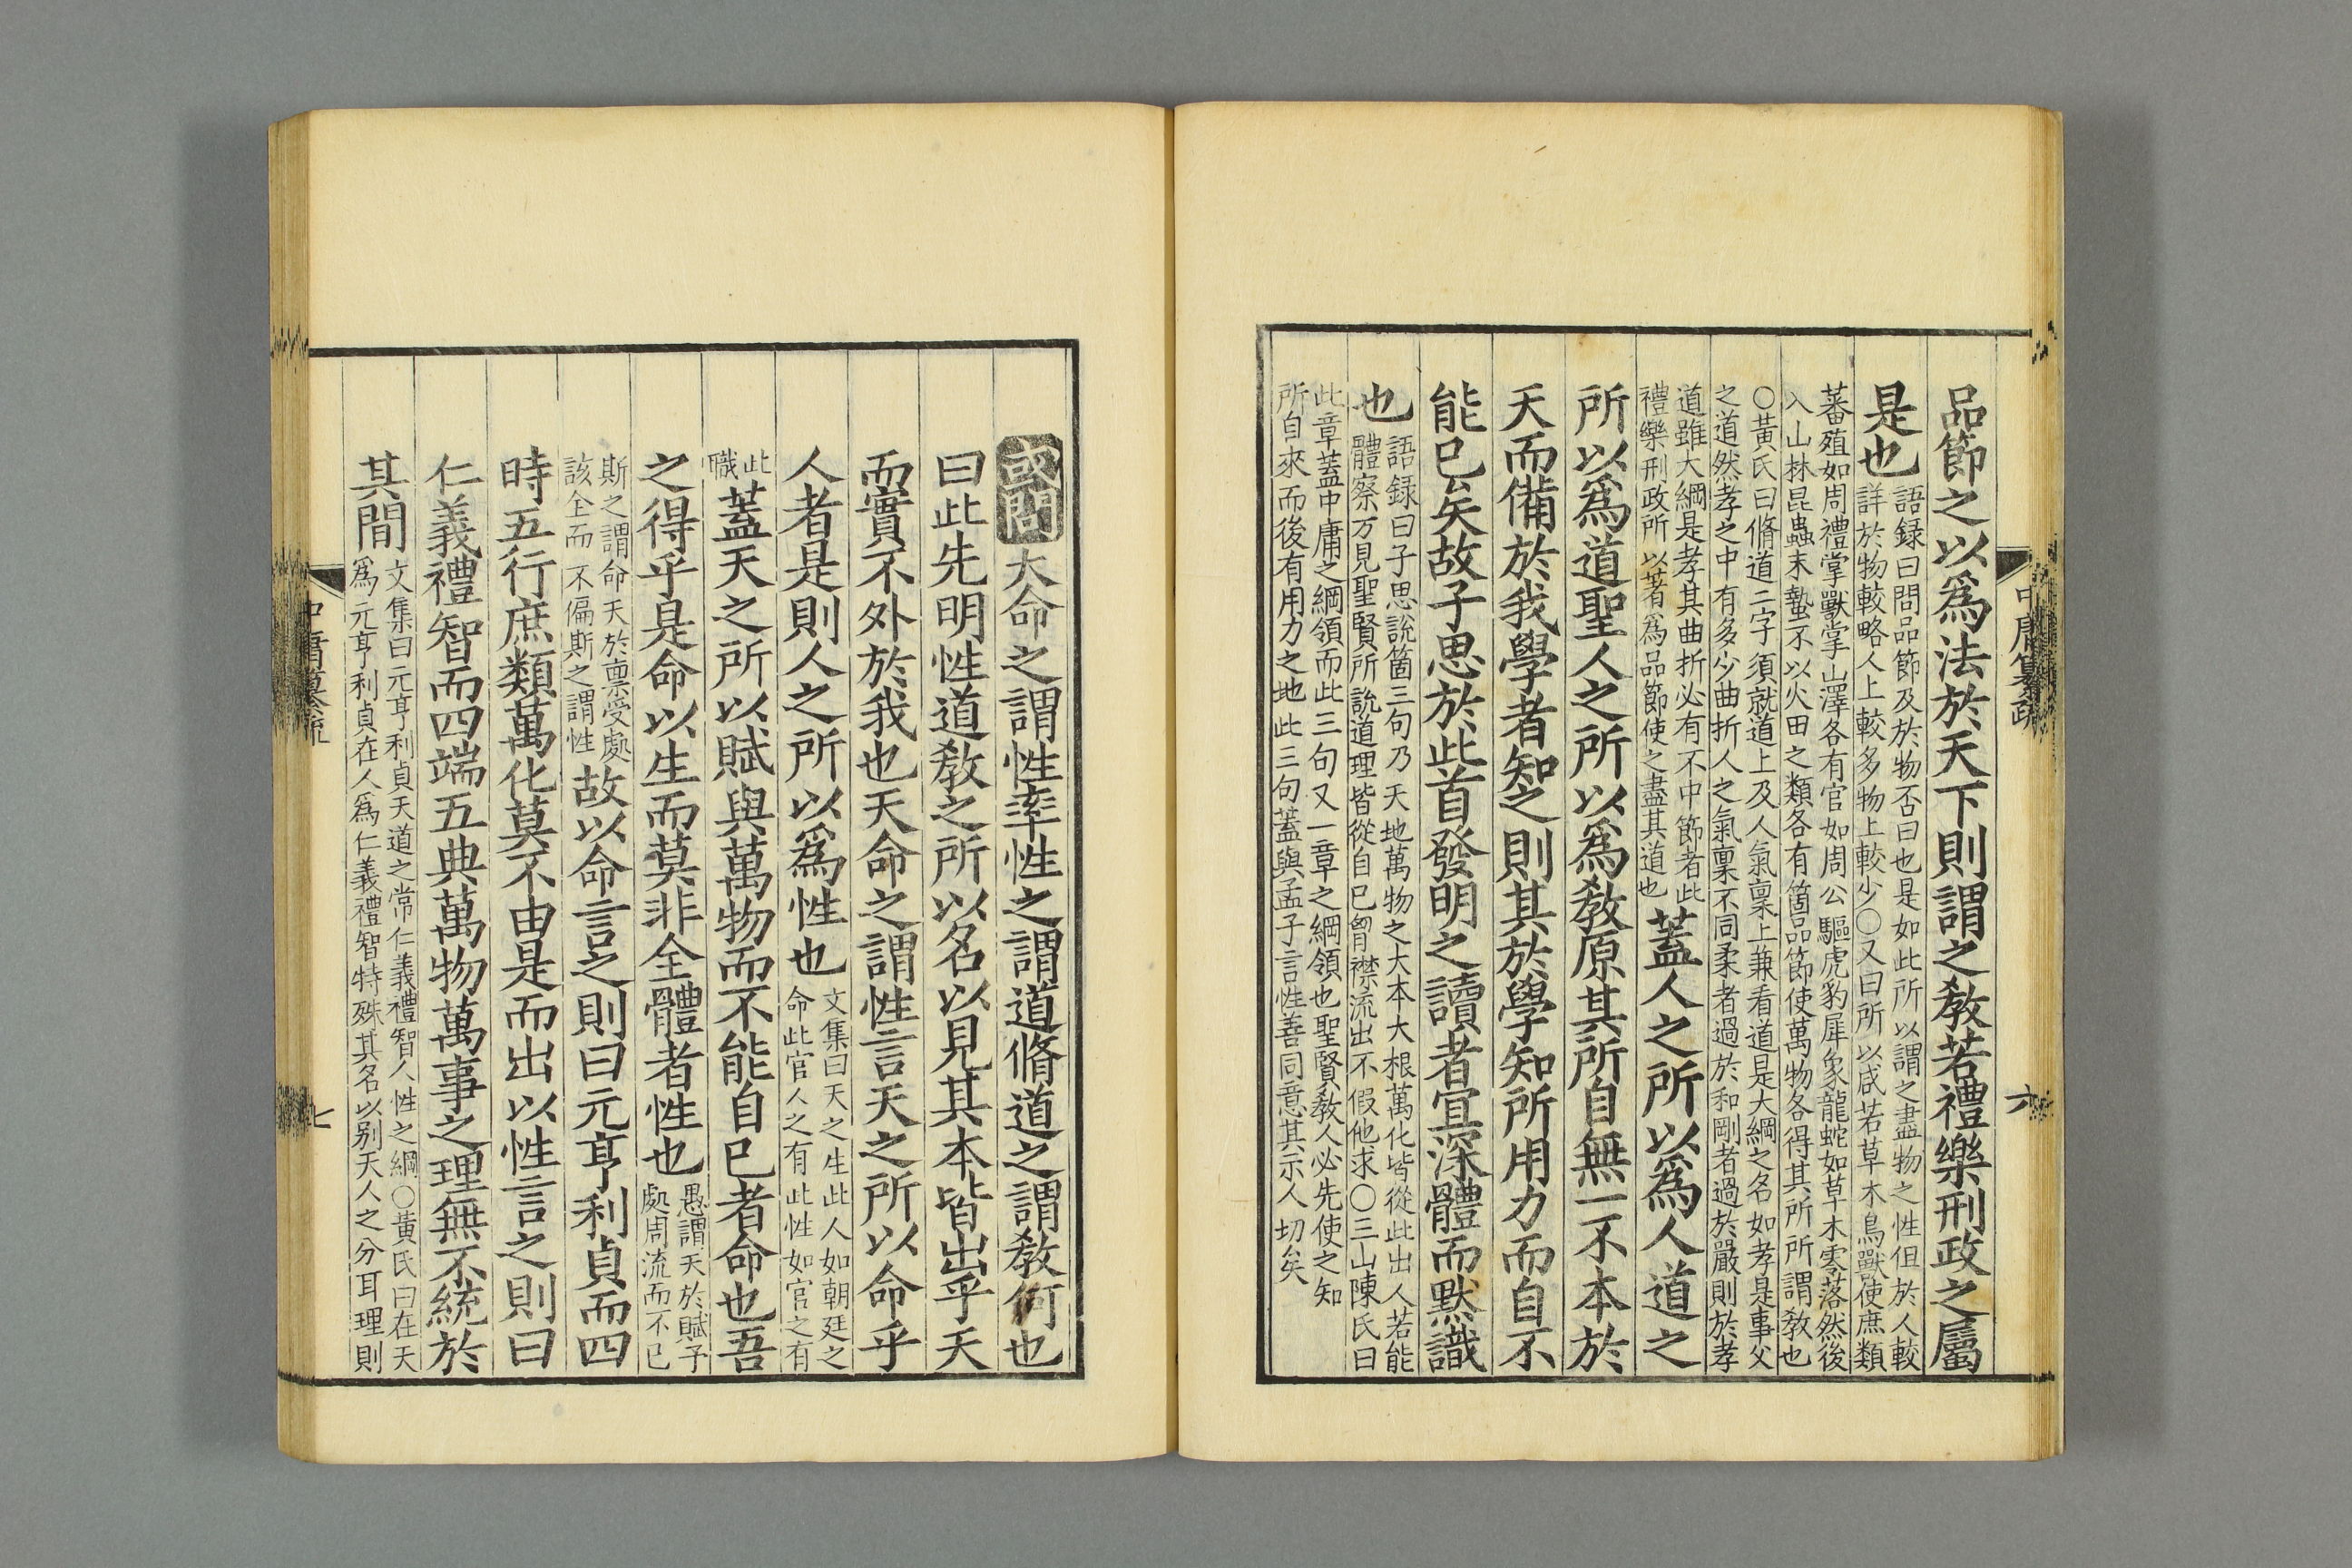 品節之以爲法於天下則謂之教若禮樂刑政之屬
是也
語録曰問品節及於物否曰也是如此所以謂之盡物之性但於人較
詳於物較略人上較多物上較少〇又曰所以咸若草木鳥獸使庶類
蕃殖如周禮掌獸掌山澤各有官如周公驅虎豹犀象龍蛇如草木零落然後
入山林昆蟲未蟄不以火田之類各有箇品節使萬物各得其所所謂教也
〇黃氏曰脩道二字須就道上及人氣稟上兼看道是大綱之名如孝是事父
之道然孝之中有多少曲折人之氣稟不同柔者過於和剛者過於嚴則於孝
道雖大綱是孝其曲折必有不中節者此
禮樂刑政所以著爲品節使之盡其道也
蓋人之所以爲人道之
所以爲道聖人之所以爲教原其所自無一不本於
天而備於我學者知之則其於學知所用力而自不
能已矣故子思於此首發明之讀者宜深體而默識
也
語録曰子思說箇三句乃天地萬物之大本大根萬化皆從此出人若能
體察方見聖賢所說道理皆從自已胷襟流出不假他求〇三山陳氏曰
此章蓋中庸之綱領而此三句又一章之綱領也聖賢教人必先使之知
所自來而後有用力之地此三句蓋與孟子言性善同意其示人切矣
中庸纂疏
六
或問
天命之謂性率性之謂道脩道之謂教何也
曰此先明性道教之所以名以見其本皆出乎天
而實不外於我也天命之謂性言天之所以命乎
人者是則人之所以爲性也
文集曰天之生此人如朝廷之
命此官人之有此性如官之有
此
職
蓋天之所以賦與萬物而不能自已者命也吾
之得乎是命以生而莫非全體者性也
愚謂天於賦予
處周流而不已
斯之謂命天於稟受處
該全而不偏斯之謂性
故以命言之則曰元亨利貞而四
時五行庶類萬化莫不由是而出以性言之則曰
仁義禮智而四端五典萬物萬事之理無不統於
其間
文集曰元亨利貞天道之常仁義禮智人性之綱〇黃氏曰在天
爲元亨利貞在人爲仁義禮智特殊其名以别天人之分耳理則
中庸纂疏
七